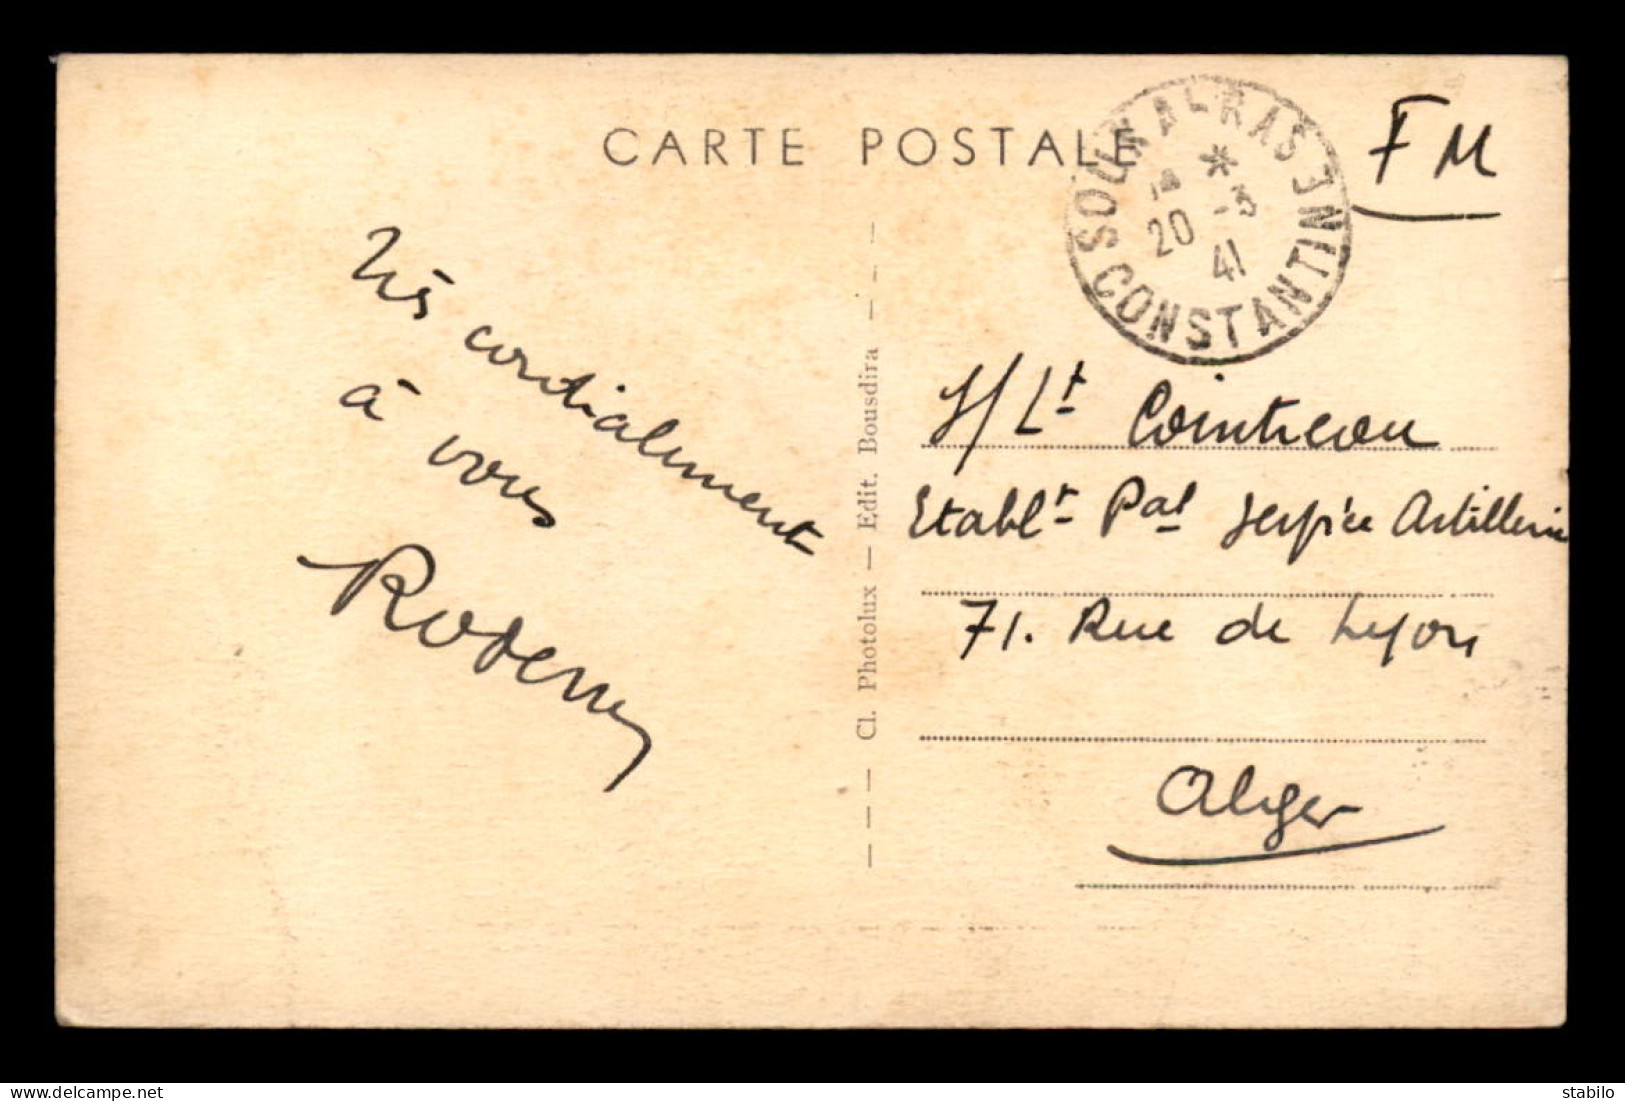 CARTE POSTALE
SOUK-AL-RAS
*
20 -3
41
CONSTANTINE
F M
Très cordialement
à vous
Cl. Photolux — Edit. Bousdira
S/Lt Cointreau
Etablt Pal Service Artillerie
71. Rue de Lyon
Alger
stabilo